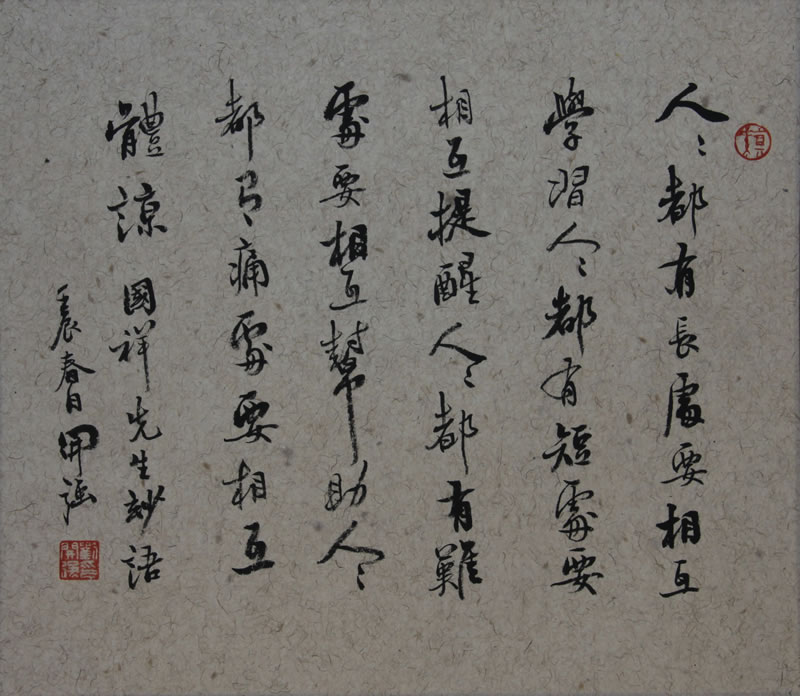 人々都有長處要相互
學習人々都有短處要
相互提醒人々都有難
處要相互幫助人々
都有痛處要相互
體諒 國祥先生妙語
壬辰春日開強